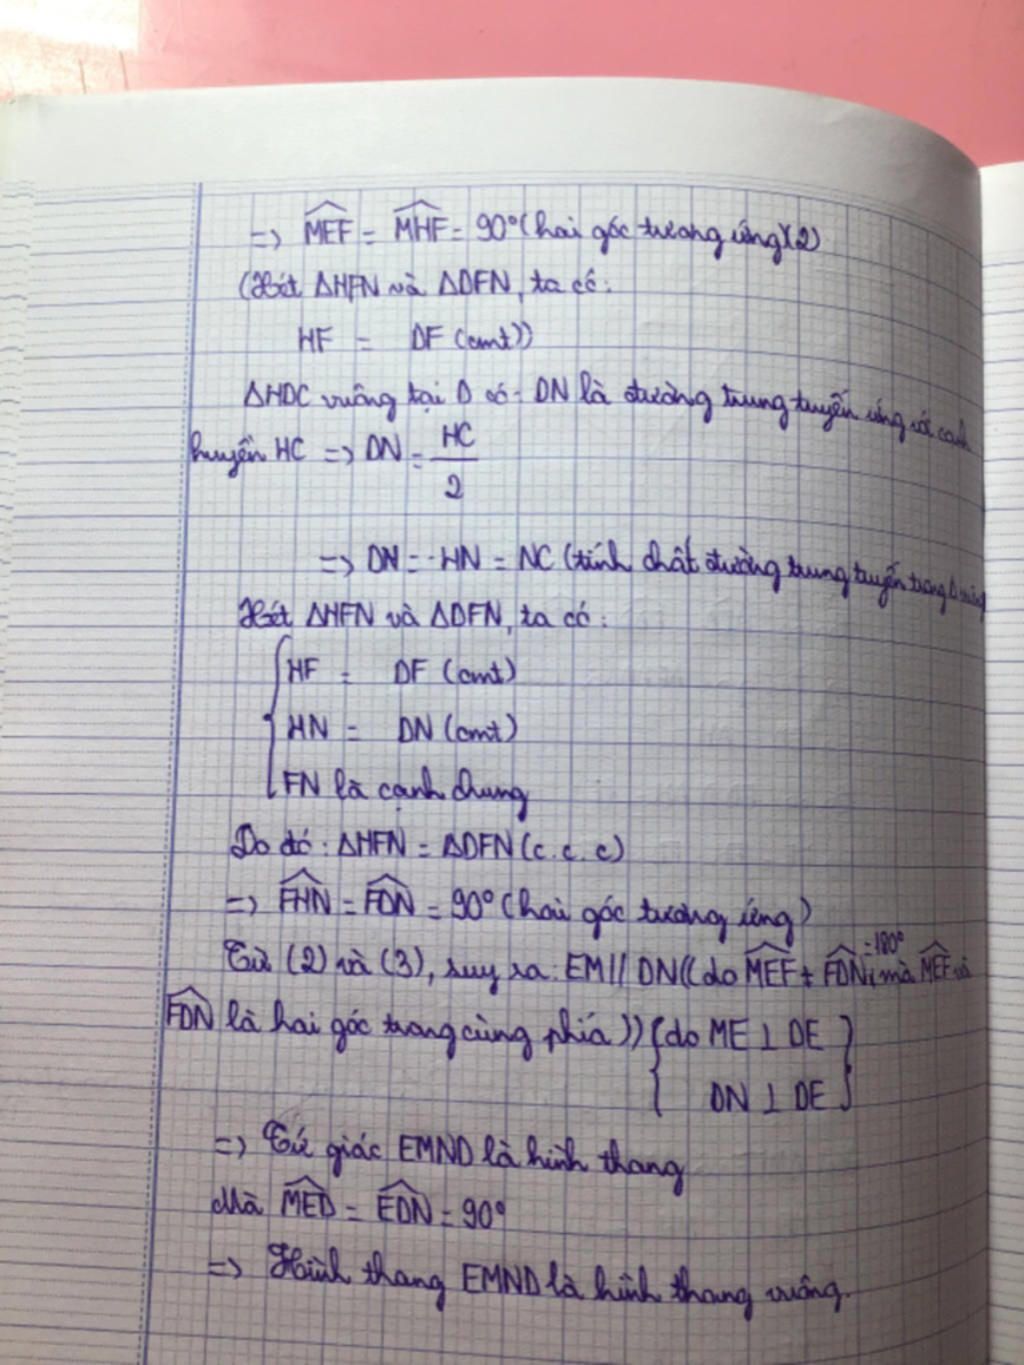 => MEF = MHF = 90° (hai góc tương ứng)(2)
(Xét ΔHFN và ΔDFN, ta có:
HF = DF (cmt))
ΔHDC vuông tại D có: DN là đường trung tuyến ứng với cạnh
huyền HC => DN = HC/2
=> DN = HN = NC (tính chất đường trung tuyến trong Δ vuông
Xét ΔHFN và ΔDFN, ta có:
HF = DF (cmt)
HN = DN (cmt)
FN là cạnh chung
Do đó: ΔHFN = ΔDFN (c.c.c)
=> FHN = FDN = 90° (hai góc tương ứng)
Từ (2) và (3), suy ra: EM // DN ((do MEF + FDN = 180°, mà MEF và
FDN là hai góc trong cùng phía)) {do ME ⊥ DE
DN ⊥ DE}
=> Tứ giác EMND là hình thang
Mà MED = EDN = 90°
=> Hình thang EMND là hình thang vuông.